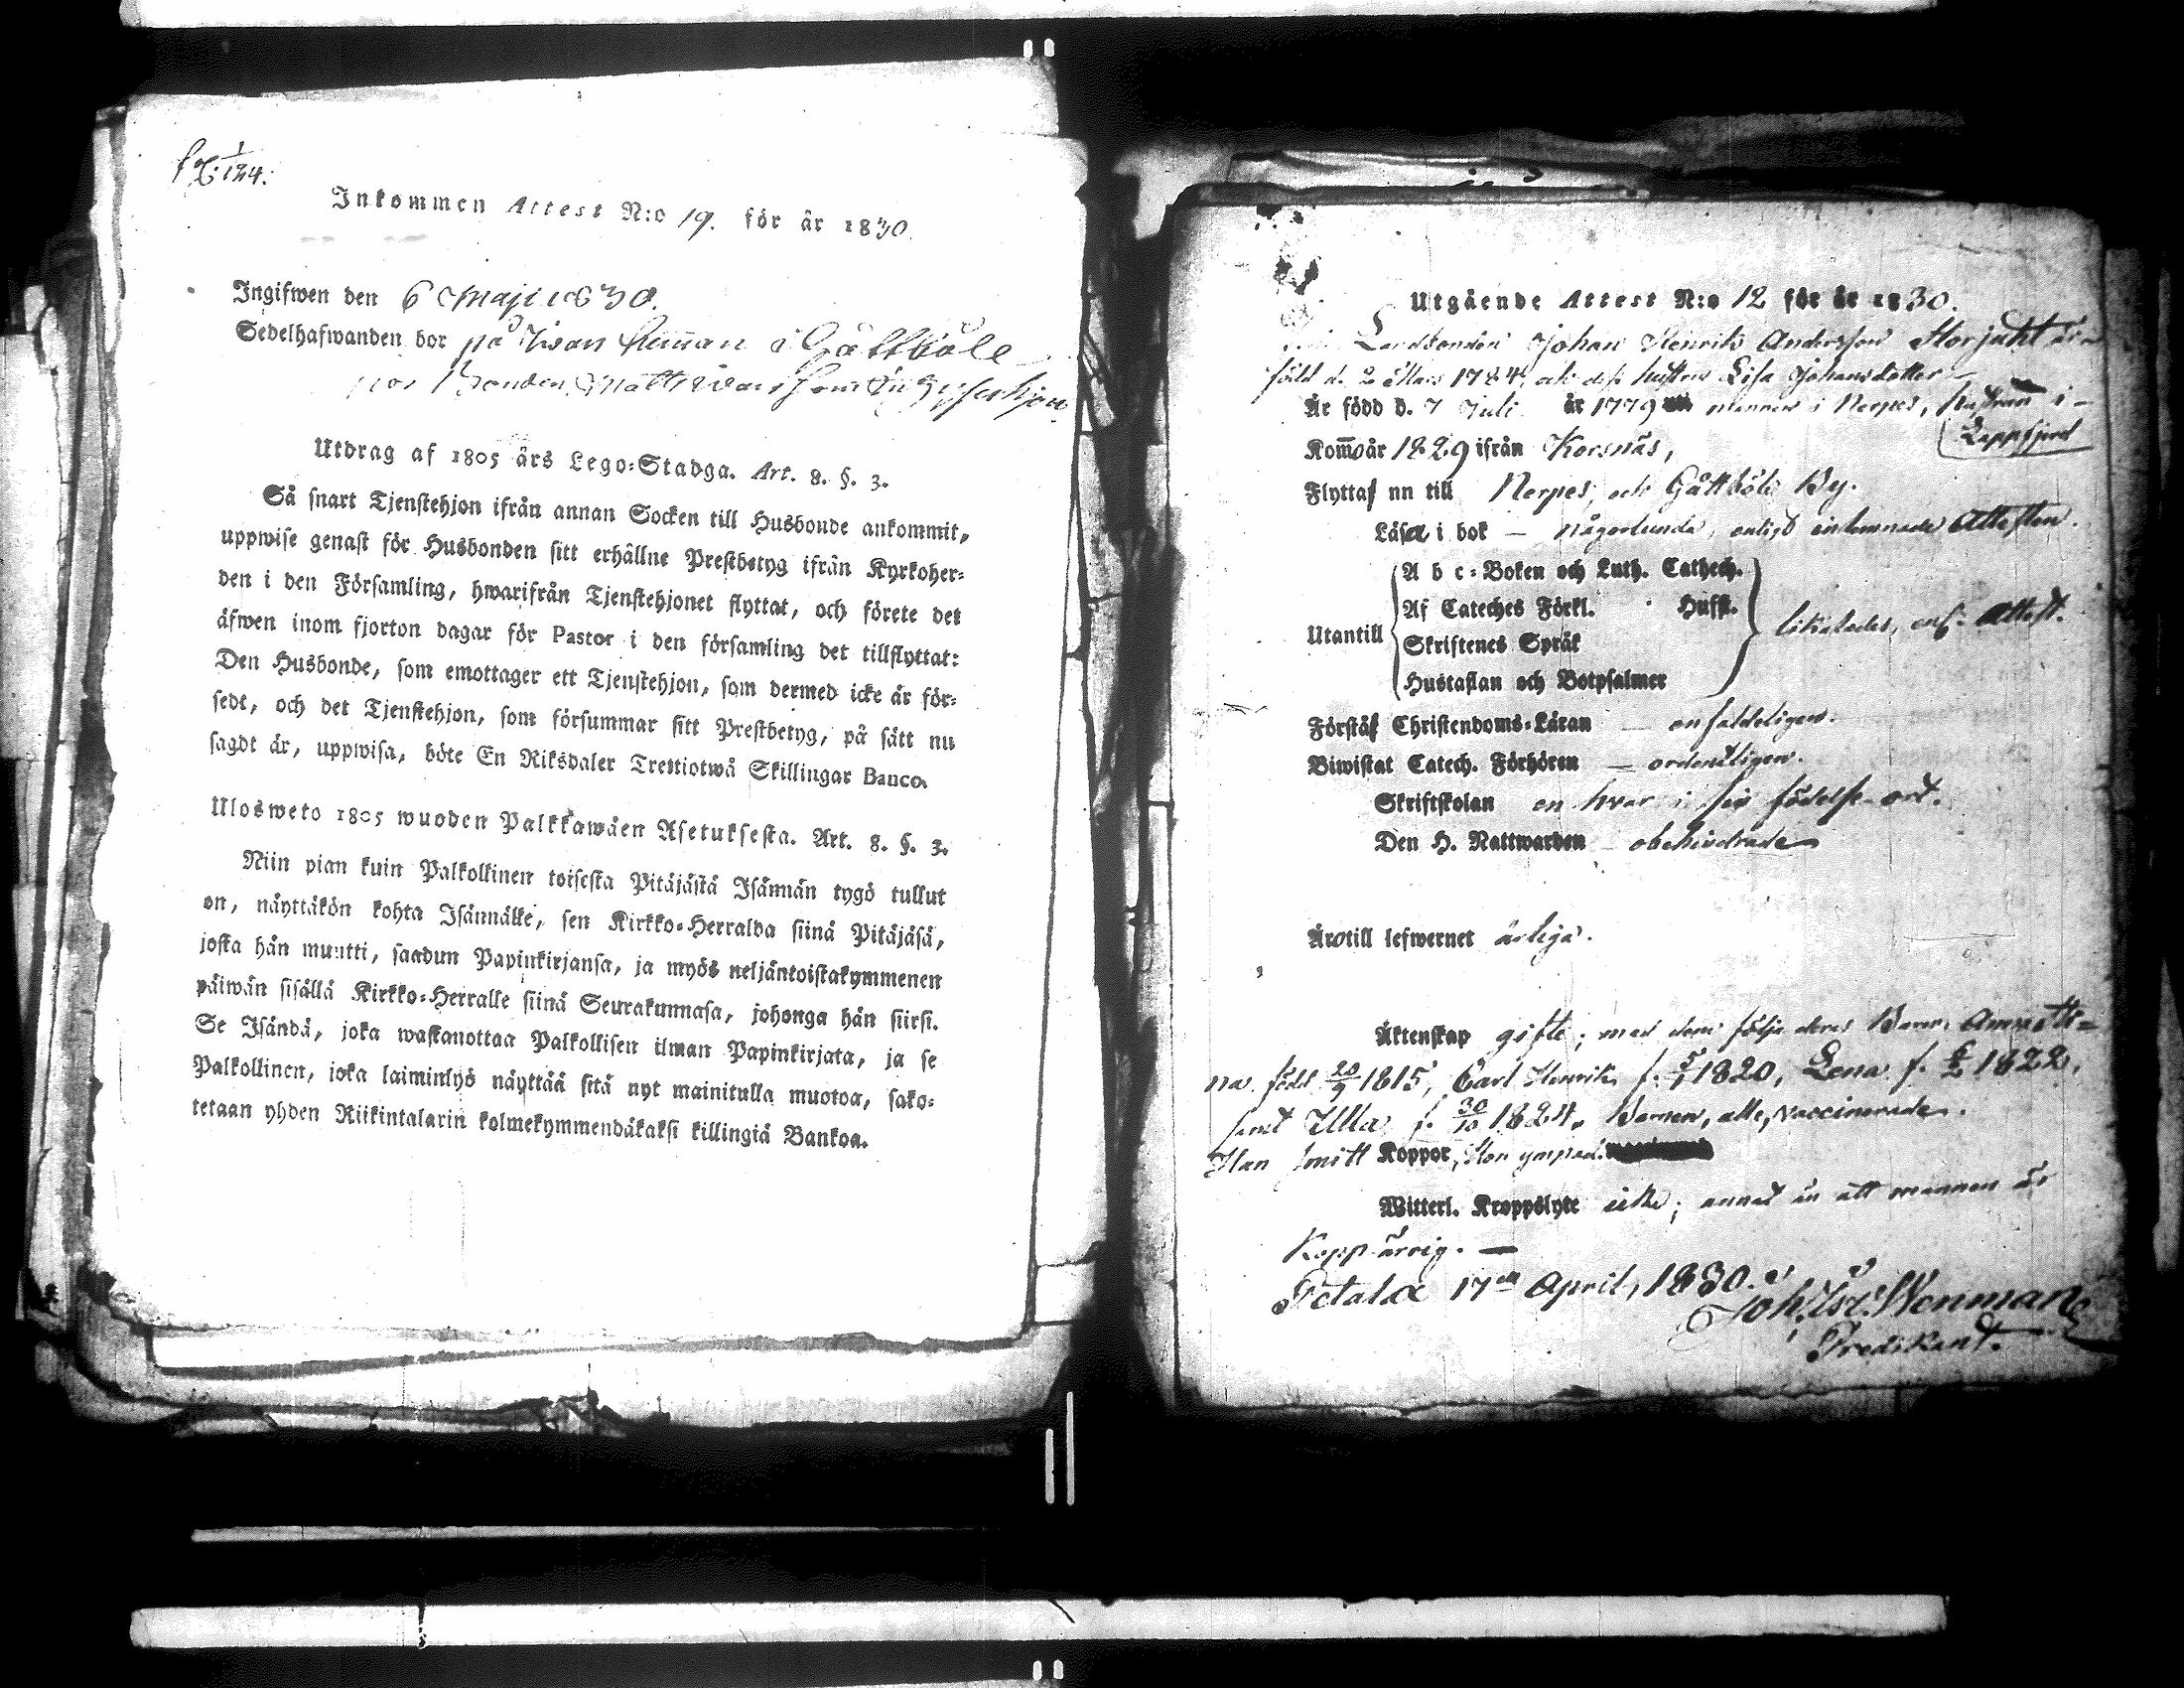 124.
Inkommen Attest N:o 19. för år 1830.
Ingifwen den 6 Maji 1830.
Sedelhafwanden bor på Iwars hemman i Gåttböle
hos Bonden Matts
Utdrag af 1805 års Lego-Stadga. Art. 8. §. 3.
Så snart Tjenstehjon ifrån annan Socken till Husbonde ankommit,
uppwise genast för Husbonden sitt erhållne Prestbetyg ifrån Kyrkoher-
den i den Församling, hwarifrån Tjenstehjonet flyttat, och förete det
äfwen inom fjorton dagar för Pastor i den församling det tillflyttat:
Den Husbonde, som emottager ett Tjenstehjon, som dermed icke är för-
sedt, och det Tjenstehjon, som försummar sitt Prestbetyg, på sätt nu
sagdt är, uppwisa, böte En Riksdaler Trettiotwå Skillingar Banco.
Ulosweto 1805 wuoden Palkkawäen Asetuksesta. Art. 8. §. 3.
Niin pian kuin Palkollinen toisesta Pitäjästä Isännän tygö tullut
on, näyttäkön kohta Isännälle, sen Kirkko-Herralda siinä Pitäjäsä,
josta hän muutti, saadun Papinkirjansa, ja myös neljäntoistakymmenen
päiwän sisällä Kirkko-Herralle siinä Seurakunnasa, johonga hän siirsi.
Se Isändä, joka wastanottaa Palkollisen ilman Papinkirjata, ja se
Palkollinen, joka laiminlyö näyttää sitä nyt mainitulla muotoa, sako-
tetaan yhden Riikintalarin kolmekymmendäkaksi killingiä Bankoa.
Utgående Attest N:o 12 för år 1830.
Landbonden Johan Henrik Andersson Storjuht är
född d. 2 Mars 1784, och dess hustru Lisa Johansdotter
Är född d. 7 Juli år 1779 mannen i Nerpes, hustrun i
Lappfjerd
Kom̅o år 1829 ifrån Korsnäs,
Flyttaf nu till Nerpes, och Gåttböle By.
Läsa i bok — någorlunda, enligt inlemnade Attesten.
Utantill
A b c-Boken och Luth. Cathech.
Af Cateches Förkl. Husst.
Skriftenes Språk
Hustaflan och Botpsalmer
likaledes, enl. Attest.
Förstå Christendoms-Läran — enfaldeligen.
Biwistat Catech. Förhören — ordentligen.
Skriftskolan en hvar i sin födelse ort.
Den H. Nattwarden — obehindrade
Äro till lefwernet ärliga.
Äktenskap gifte; med dem följa deras Barn: Annetti-
na född 20/9 1815, Carl Henrik f. 5/1 1820, Lena f. 1822,
samt Ulla f. 30/10 1824, Barnen, alle, vaccinerade.
Han haft Koppor, Hon ympad.
Witterl. Kroppslyte icke; annat än att mannen är
Koppärrig. —
Petalax 17de April, 1830.
Joh: Isr: Wenman
Predikant.